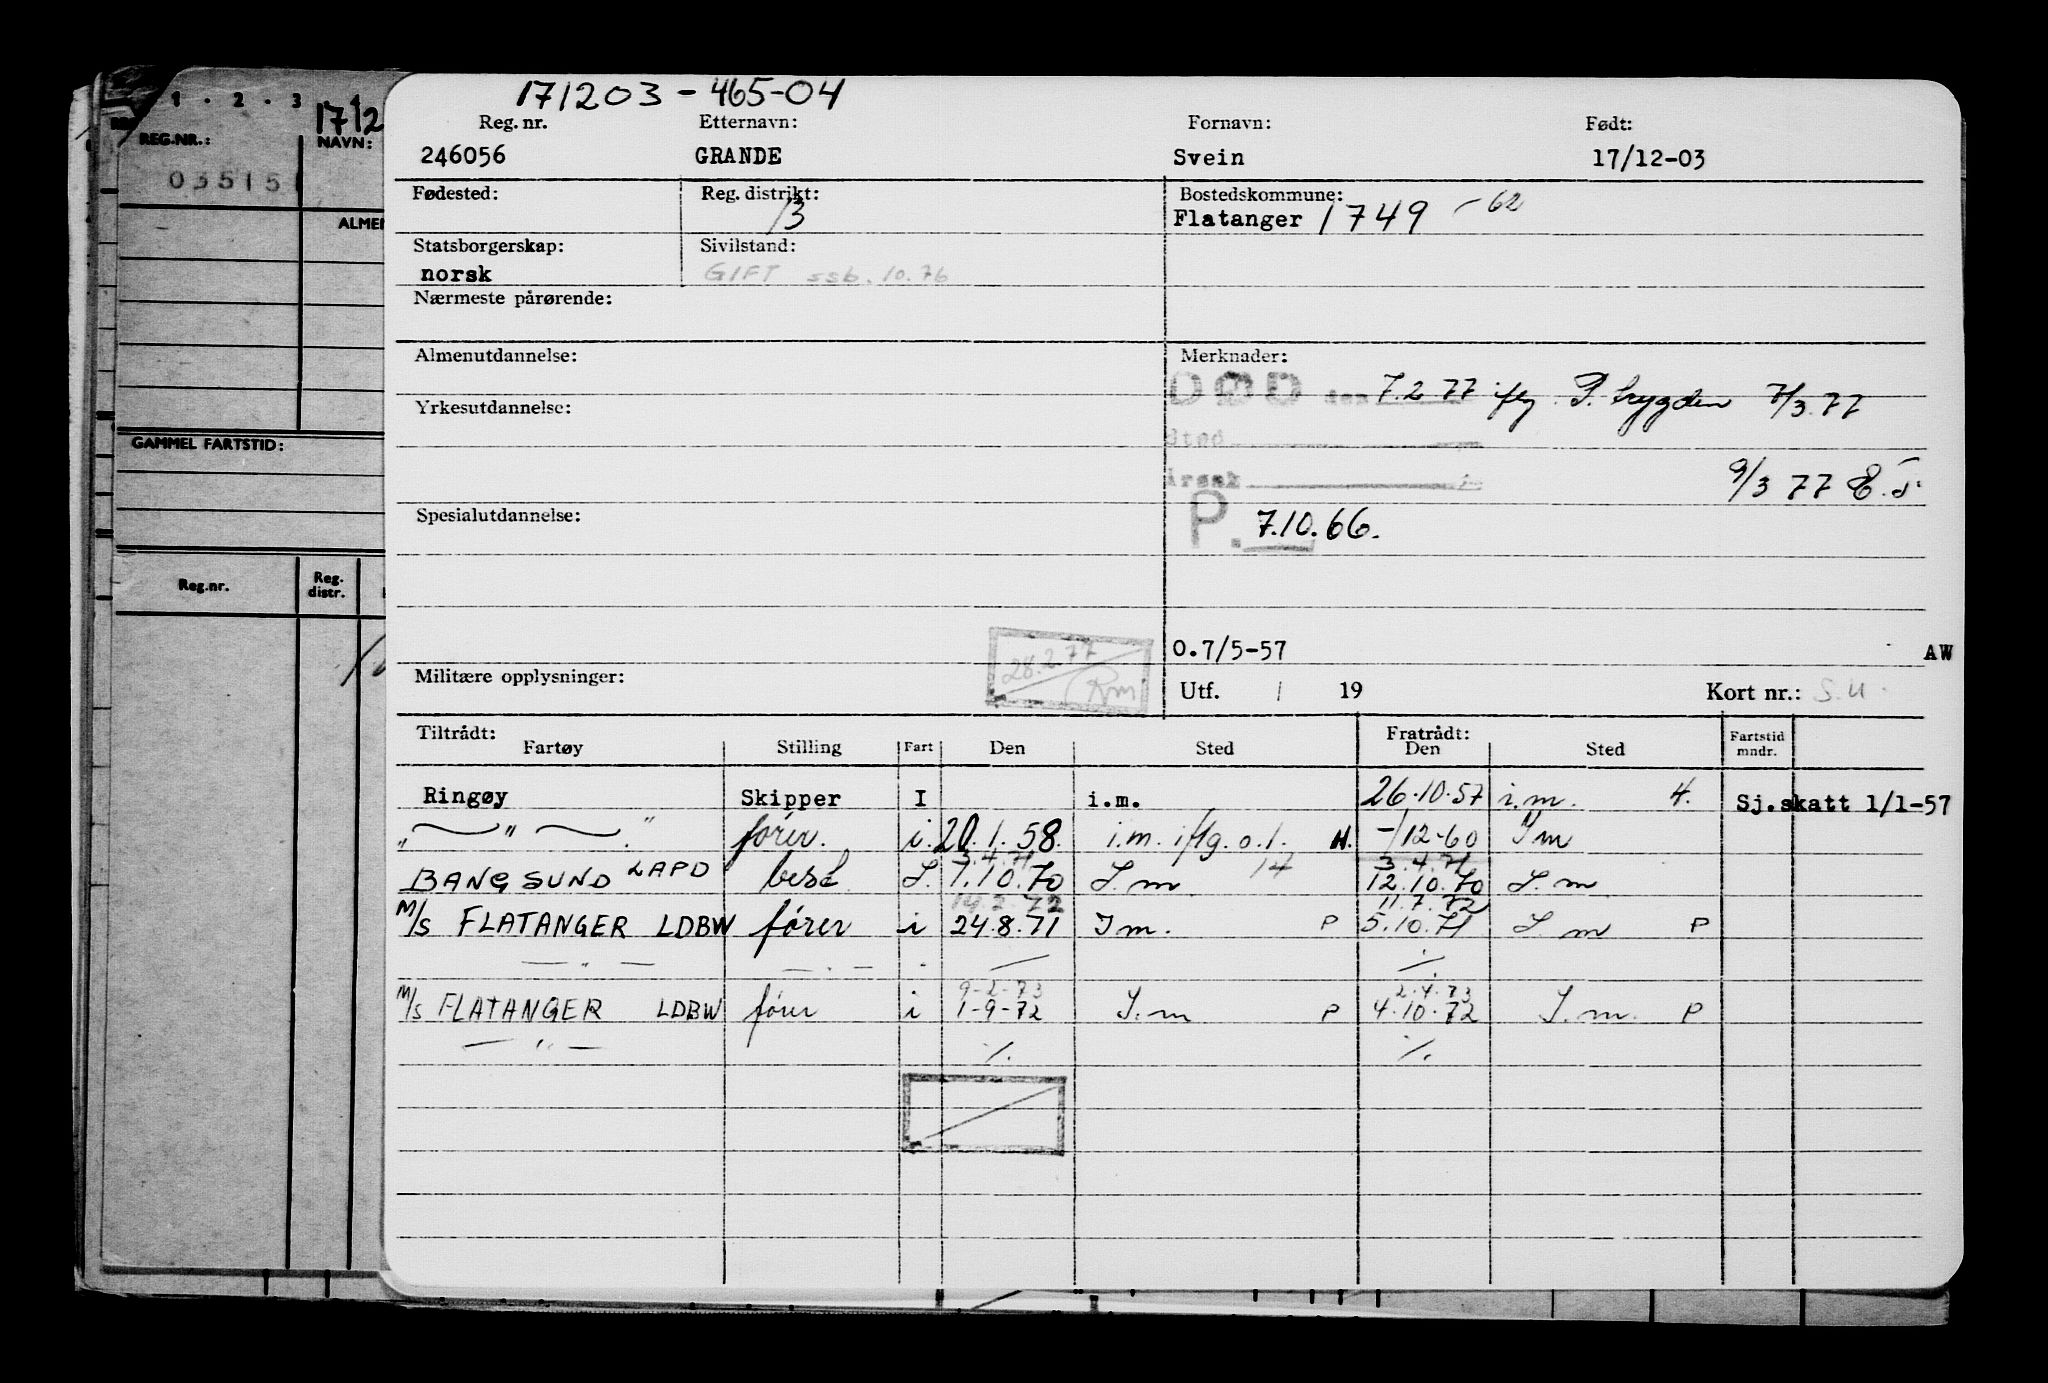 171203-465-04
Reg. nr. Etternavn: Fornavn: Født:
246056 GRANDE Svein 17/12-03
Fødested: Reg. distrikt: Bostedskommune:
13 Flatanger 1749 -62
Statsborgerskap: Sivilstand:
norsk GIFT ssb. 10.76
Nærmeste pårørende:
Almenutdannelse: Merknader:
DØD den 7.2.77 iflg. P. trygden 7/3.77
Yrkesutdannelse:
Sted
Årsak 9/3 77
Spesialutdannelse: P. 7.10.66.
O.7/5-57 AW
28.2.77
Militære opplysninger: Utf. / 19 Kort nr.: S.U.
Tiltrådt: Fratrådt:
Fartøy Stilling Fart Den Sted Den Sted Fartstid mndr.
Ringøy Skipper I i.m. 26.10.57 i.m. 4. Sj.skatt 1/1-57
" " " fører. i. 20.1.58. i.m. iflg. o.l. H. -/12-60 I m
3.4.71 14 3.4.71
BANGSUND LAPD L. 1.10.70 L.m. 12.10.70 L.m
14.2.72 11.7.72
M/S FLATANGER LDBW fører i 24.8.71 I m. P 5.10.71 L.m P
— " — — . — - — ./.
9-2-73 2.4.73
M/S FLATANGER LDBW fører i 1-9-72 I.m P 4.10.72 I.m. P
— " — ./. ./.
1 . 2 . 3
1712
REG.NR.: NAVN:
035151
ALMEN
GAMMEL FARTSTID:
Reg.nr. Reg. distr.